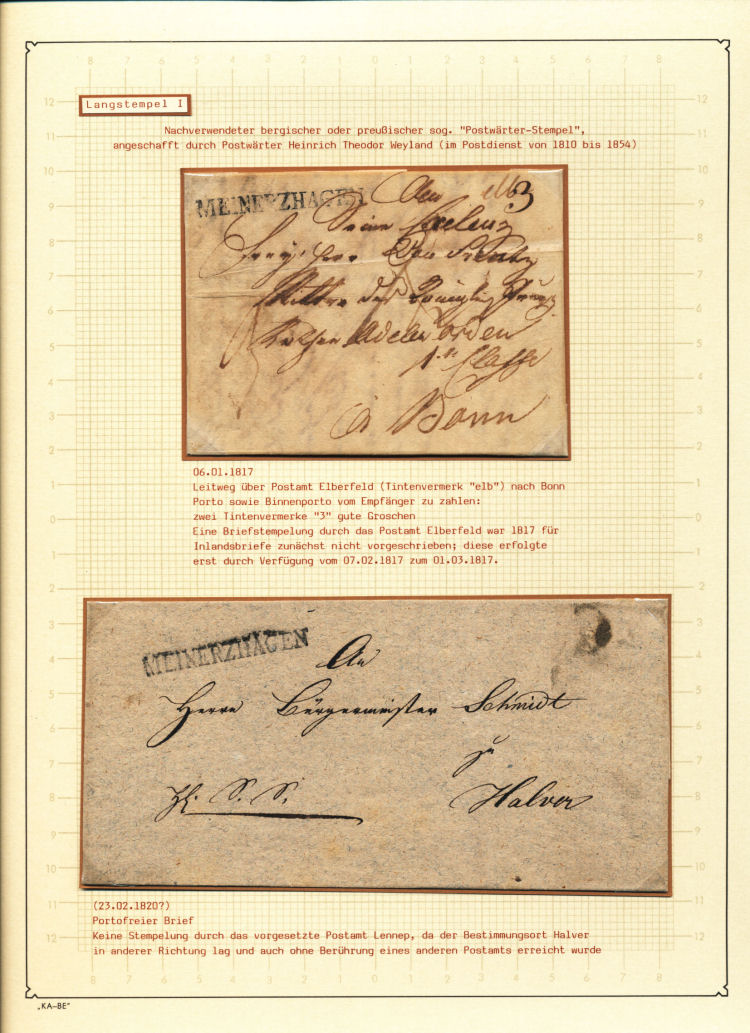 Langstempel I
Nachverwendeter bergischer oder preußischer sog. "Postwärter-Stempel",
angeschafft durch Postwärter Heinrich Theodor Weyland (im Postdienst von 1810 bis 1854)
MEINERZHAGEN
An elb 3
Seine Excelenz
Herrn
Ritter des Königlich
Rothen Adeler orden
1ter Classe
à Bonn
06.01.1817
Leitweg über Postamt Elberfeld (Tintenvermerk "elb") nach Bonn
Porto sowie Binnenporto vom Empfänger zu zahlen:
zwei Tintenvermerke "3" gute Groschen
Eine Briefstempelung durch das Postamt Elberfeld war 1817 für
Inlandsbriefe zunächst nicht vorgeschrieben; diese erfolgte
erst durch Verfügung vom 07.02.1817 zum 01.03.1817.
MEINERZHAGEN
An
Herrn Bürgermeister Schmidt
zu
H. S. S. Halver
(23.02.1820?)
Portofreier Brief
Keine Stempelung durch das vorgesetzte Postamt Lennep, da der Bestimmungsort Halver
in anderer Richtung lag und auch ohne Berührung eines anderen Postamts erreicht wurde
„KA-BE"